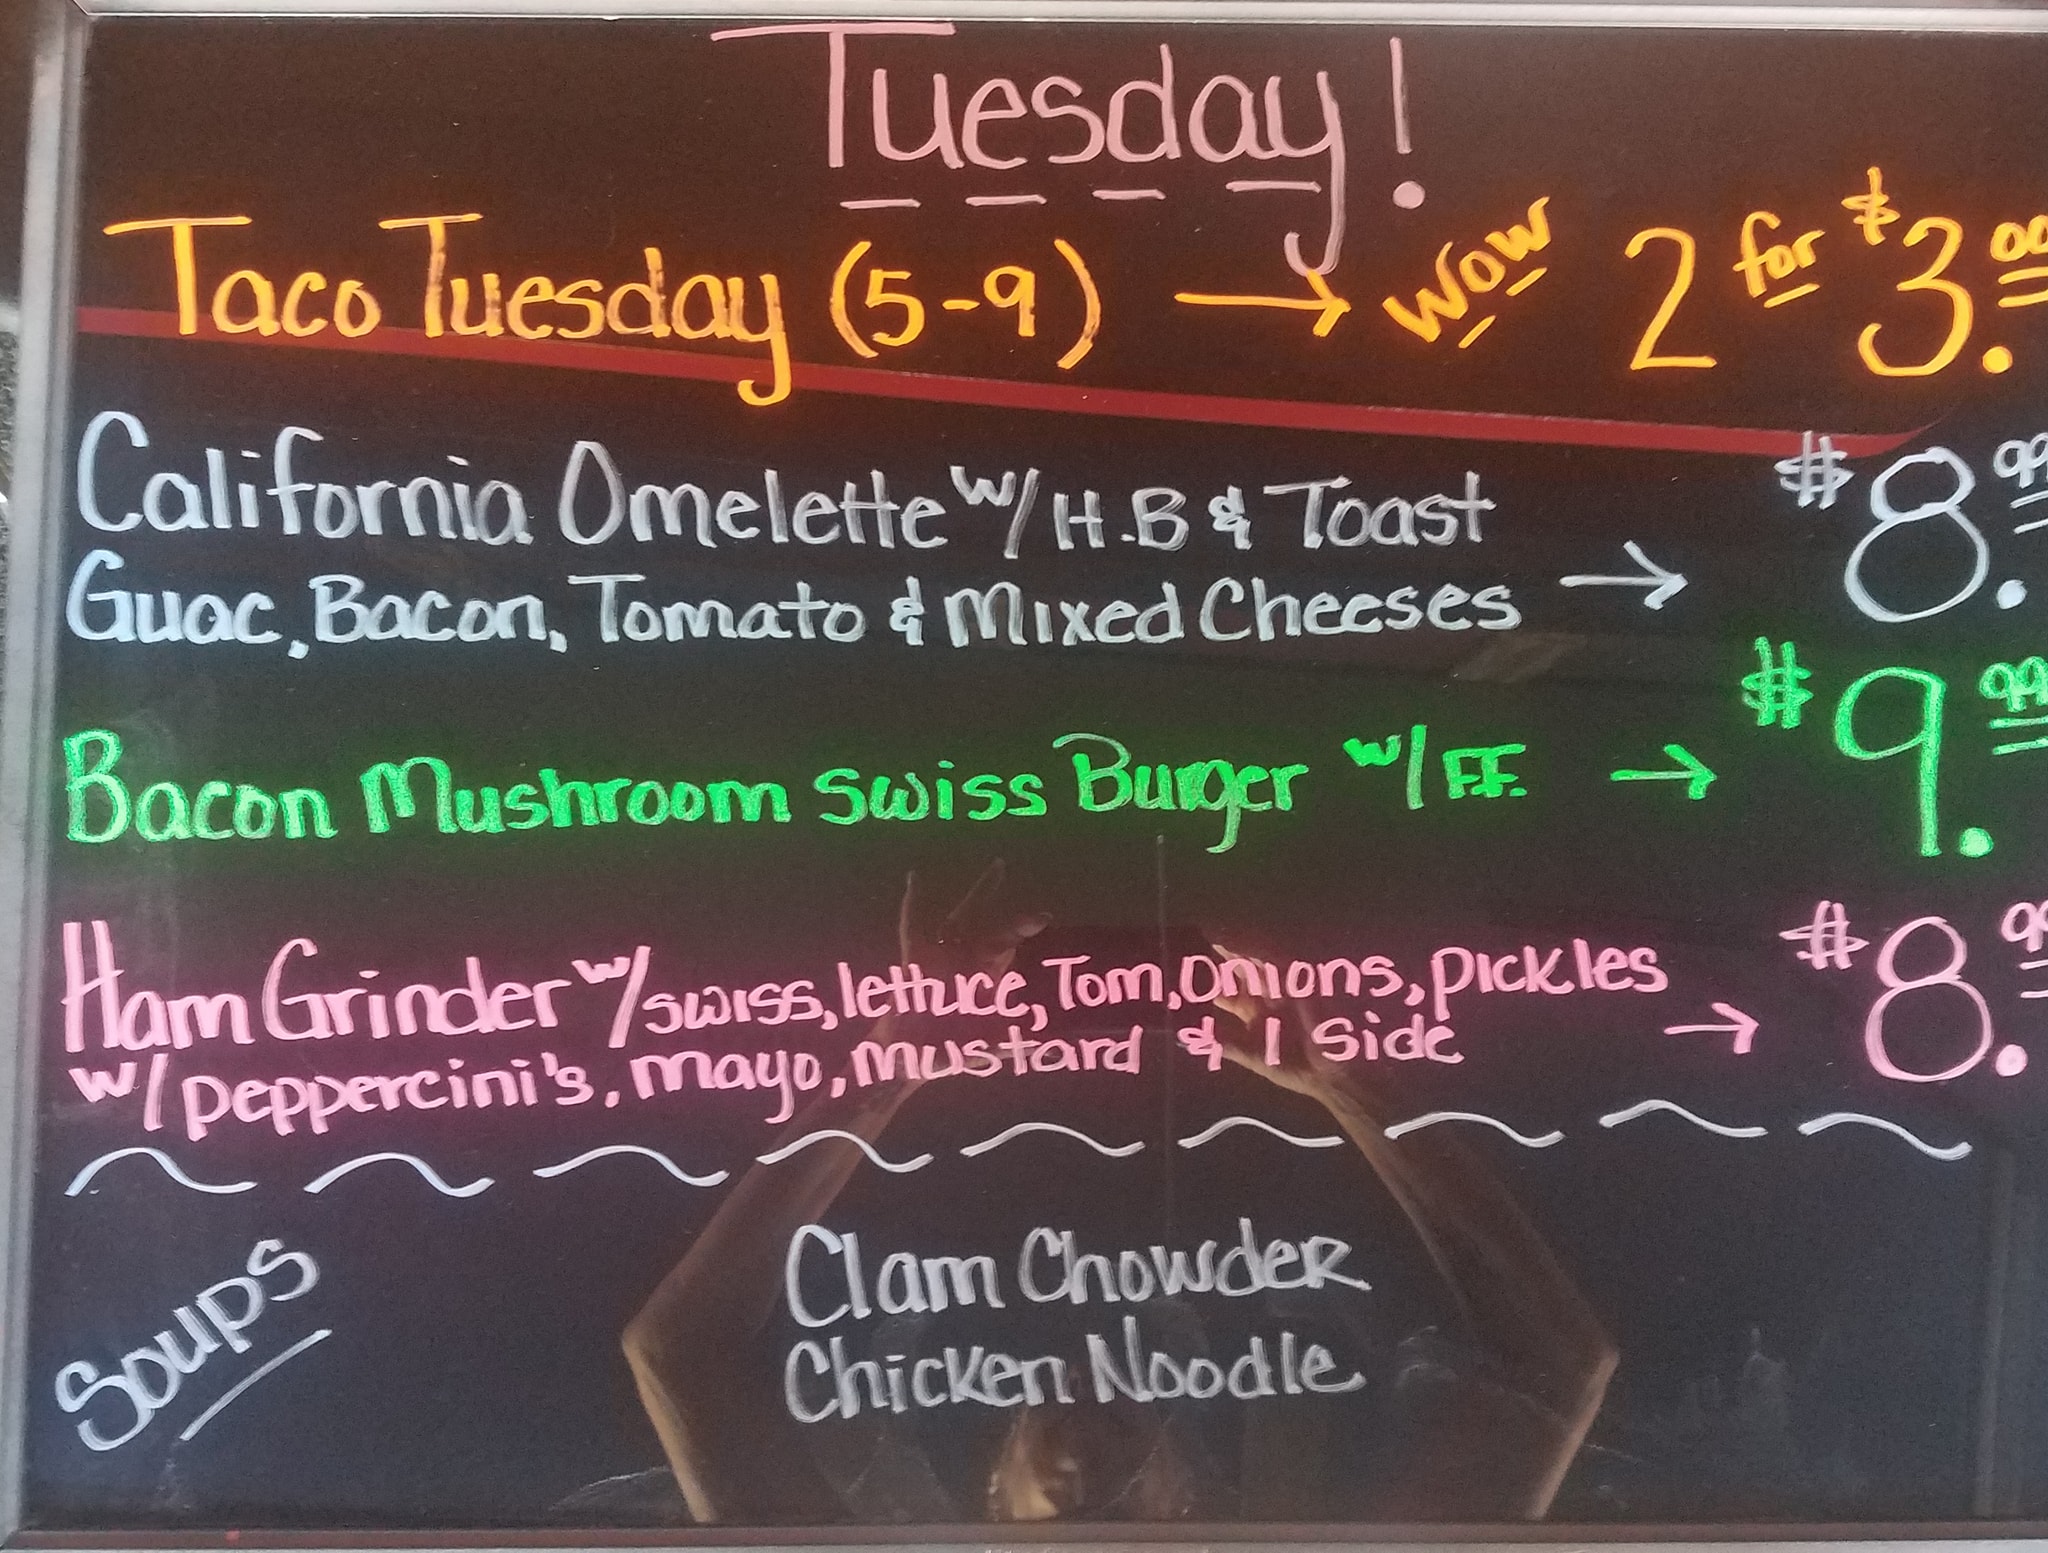 Tuesday!
Taco Tuesday (5-9) → Wow 2 for $3.00
California Omelette w/ H.B & Toast
Guac, Bacon, Tomato & Mixed Cheeses → $8.99
Bacon Mushroom Swiss Burger w/ F.F. → $9.99
Ham Grinder w/ swiss, lettuce, Tom, Onions, Pickles
w/ peppercini's, mayo, mustard & 1 Side → $8.99
Soups
Clam Chowder
Chicken Noodle